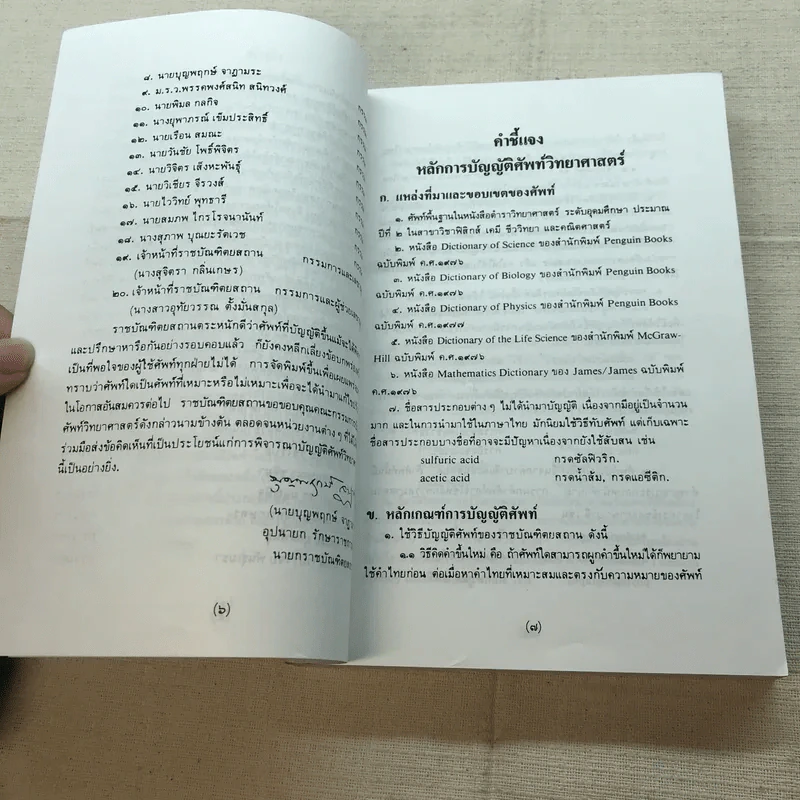 ๘. นายบุญพฤกษ์ จาฏามระ
๙. ม.ร.ว.พรรคพงศ์สนิท สนิทวงศ์
๑๐. นายพิมล กลกิจ
๑๑. นางยุพาภรณ์ เข็มประสิทธิ์
๑๒. นายเรือน สมณะ
๑๓. นายวันชัย โพธิ์พิจิตร
๑๔. นายวิจิตร เส็งหะพันธุ์
๑๕. นายวิเชียร จีรวงส์
๑๖. นายไววิทย์ พุทธารี
๑๗. นายสมภพ ไกรโรจนานันท์
๑๘. นางสุภาพ บุณยะรัตเวช
๑๙. เจ้าหน้าที่ราชบัณฑิตยสถาน กรรมการและ
(นางสุจิตรา กลิ่นเกษร)
๒๐. เจ้าหน้าที่ราชบัณฑิตยสถาน กรรมการและผู้ช่วย
(นางสาวอุทัยวรรณ ตั้งมั่นสกุล)
ราชบัณฑิตยสถานตระหนักดีว่าศัพท์ที่บัญญัติขึ้นแม้จะได้
และปรึกษาหารือกันอย่างรอบคอบแล้ว ก็ยังคงหลีกเลี่ยงข้อบกพร่อง
เป็นที่พอใจของผู้ใช้ศัพท์ทุกฝ่ายไม่ได้ การจัดพิมพ์ขึ้นเพื่อเผยแพร่
ทราบว่าศัพท์ใดเป็นศัพท์ที่เหมาะหรือไม่เหมาะเพื่อจะได้นำมาแก้ไข
ในโอกาสอันสมควรต่อไป ราชบัณฑิตยสถานขอขอบคุณคณะกรรมการ
ศัพท์วิทยาศาสตร์ดังกล่าวนามข้างต้น ตลอดจนหน่วยงานต่าง ๆ ที่ได้
ร่วมมือส่งข้อคิดเห็นที่เป็นประโยชน์แก่การพิจารณาบัญญัติศัพท์วิทยา
นี้เป็นอย่างยิ่ง.
(นายบุญพฤกษ์ จา
อุปนายก รักษาราช
นายกราชบัณฑิตยส
(๖)
คำชี้แจง
หลักการบัญญัติศัพท์วิทยาศาสตร์
ก. แหล่งที่มาและขอบเขตของศัพท์
๑. ศัพท์พื้นฐานในหนังสือตำราวิทยาศาสตร์ ระดับอุดมศึกษา ประมาณ
ปีที่ ๒ ในสาขาวิชาฟิสิกส์ เคมี ชีววิทยา และคณิตศาสตร์
๒. หนังสือ Dictionary of Science ของสำนักพิมพ์ Penguin Books
ฉบับพิมพ์ ค.ศ.๑๙๗๖
๓. หนังสือ Dictionary of Biology ของสำนักพิมพ์ Penguin Books
ฉบับพิมพ์ ค.ศ.๑๙๗๖
๔. หนังสือ Dictionary of Physics ของสำนักพิมพ์ Penguin Books
ฉบับพิมพ์ ค.ศ.๑๙๗๗
๕. หนังสือ Dictionary of the Life Science ของสำนักพิมพ์ McGraw-
Hill ฉบับพิมพ์ ค.ศ.๑๙๗๖
๖. หนังสือ Mathematics Dictionary ของ James/James ฉบับพิมพ์
ค.ศ.๑๙๗๖
๗. ชื่อสารประกอบต่าง ๆ ไม่ได้นำมาบัญญัติ เนื่องจากมีอยู่เป็นจำนวน
มาก และในการนำมาใช้ในภาษาไทย มักนิยมใช้วิธีทับศัพท์ แต่เก็บเฉพาะ
ชื่อสารประกอบบางชื่อที่อาจจะมีปัญหาเนื่องจากยังใช้สับสน เช่น
sulfuric acid กรดซัลฟิวริก.
acetic acid กรดน้ำส้ม, กรดแอซีติก.
ข. หลักเกณฑ์การบัญญัติศัพท์
๑. ใช้วิธีบัญญัติศัพท์ของราชบัณฑิตยสถาน ดังนี้
๑.๑ วิธีคิดคำขึ้นใหม่ คือ ถ้าศัพท์ใดสามารถผูกคำขึ้นใหม่ได้ก็พยายาม
ใช้คำไทยก่อน ต่อเมื่อหาคำไทยที่เหมาะสมและตรงกับความหมายของศัพท์
(๗)